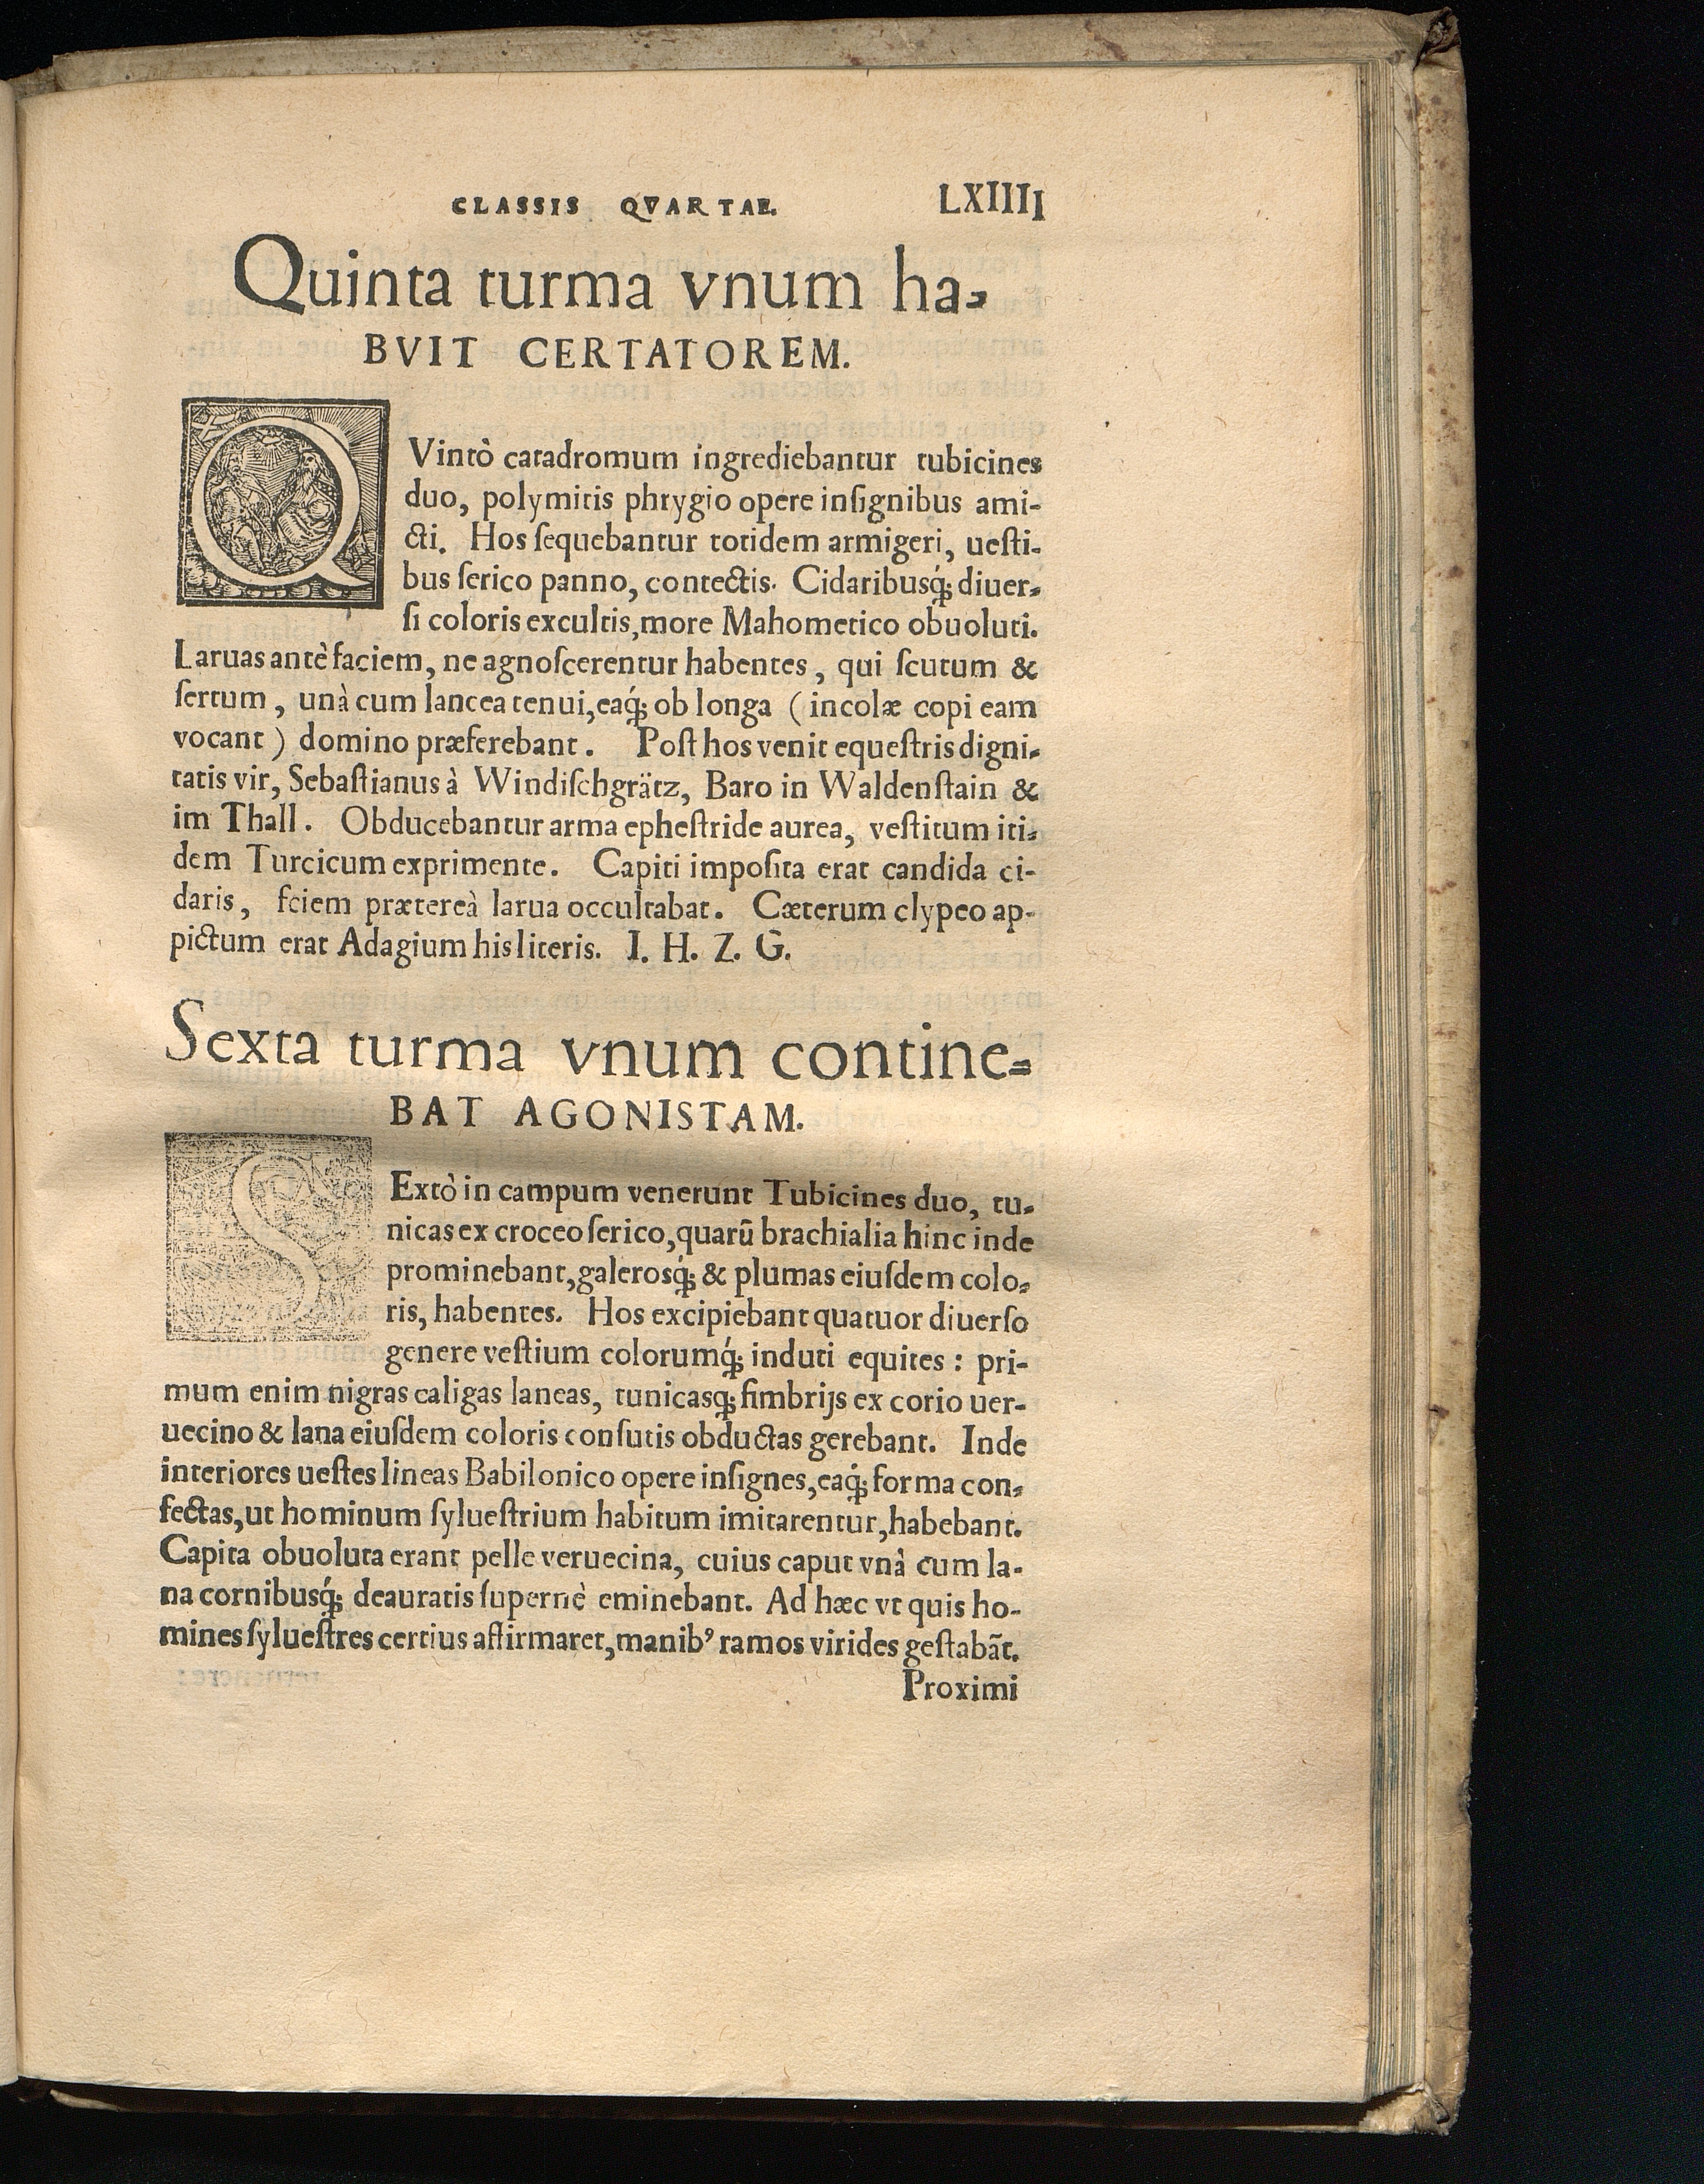 CLASSIS QVARTAE. LXIIII
Quinta turma vnum ha-
BVIT CERTATOREM.
QVintò catadromum ingrediebantur tubicines
duo, polymitis phrygio opere inſignibus ami-
cti. Hos ſequebantur totidem armigeri, ueſti-
bus ſerico panno, contectis. Cidaribusq́; diuer-
ſi coloris excultis, more Mahometico obuoluti.
Laruas antè faciem, ne agnoſcerentur habentes, qui ſcutum &
ſertum, unà cum lancea tenui, eaq́; ob longa (incolæ copi eam
vocant) domino præferebant. Poſt hos venit equeſtris digni-
tatis vir, Sebaſtianus à Windiſchgrätz, Baro in Waldenſtain &
im Thall. Obducebantur arma epheſtride aurea, veſtitum iti-
dem Turcicum exprimente. Capiti impoſita erat candida ci-
daris, fciem prætereà larua occultabat. Cæterum clypeo ap-
pictum erat Adagium his literis. I. H. Z. G.
Sexta turma vnum contine-
BAT AGONISTAM.
SExtò in campum venerunt Tubicines duo, tu-
nicas ex croceo ſerico, quarū brachialia hinc inde
prominebant, galerosq́; & plumas eiuſdem colo-
ris, habentes. Hos excipiebant quatuor diuerſo
genere veſtium colorumq́; induti equites: pri-
mum enim nigras caligas laneas, tunicasq́; fimbrijs ex corio uer-
uecino & lana eiuſdem coloris conſutis obductas gerebant. Inde
interiores ueſtes lineas Babilonico opere inſignes, eaq́; forma con-
fectas, ut hominum ſylueſtrium habitum imitarentur, habebant.
Capita obuoluta erant pelle veruecina, cuius caput vnà cum la-
na cornibusq́; deauratis ſupernè eminebant. Ad hæc vt quis ho-
mines ſylueſtres certius affirmaret, manibꝰ ramos virides geſtabāt.
Proximi